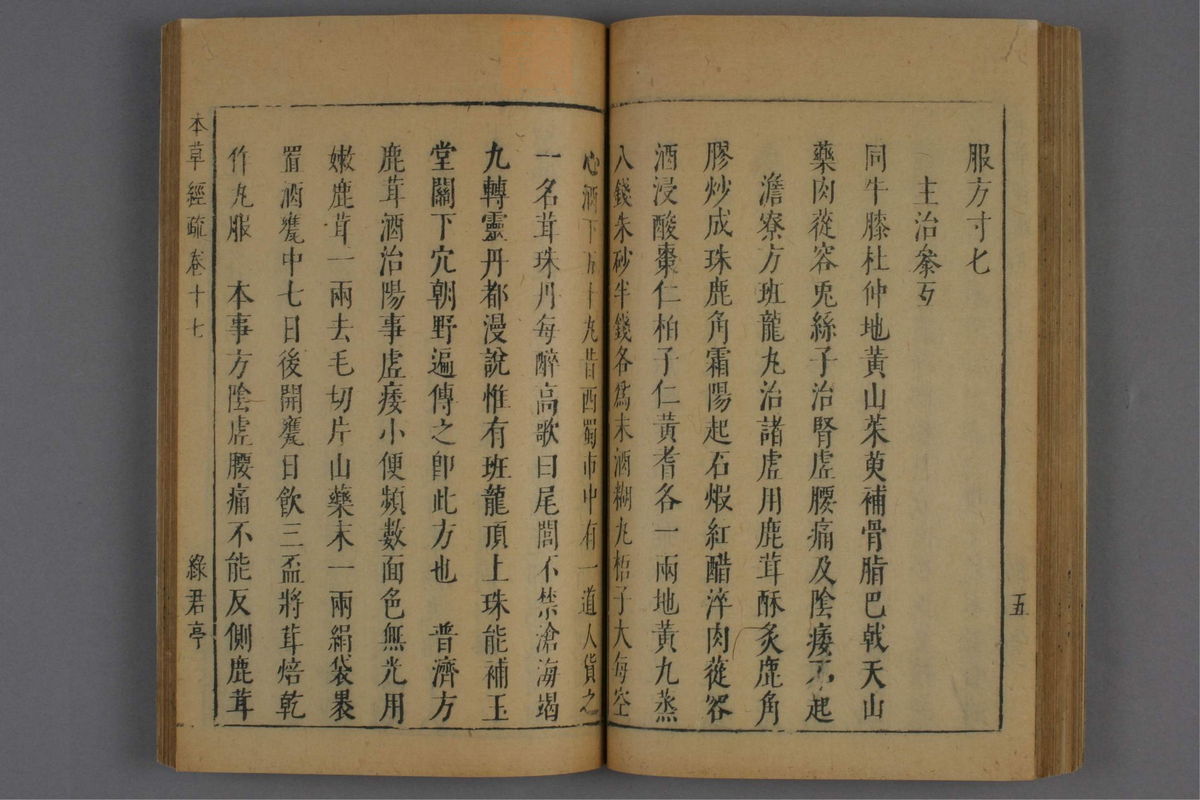 服方寸匕
主治參互
同牛膝杜仲地黃山茱萸補骨脂巴戟天山
藥肉蓯容兎絲子治腎虛腰痛及陰痿不起
澹寮方班龍丸治諸虛用鹿茸酥炙鹿角
膠炒成珠鹿角霜陽起石煆紅醋淬肉蓯容
酒浸酸棗仁柏子仁黃耆各一兩地黃九蒸
八錢朱砂半錢各爲末酒糊丸梧子大每空
心酒下五十丸昔西蜀市中有一道人貨之
一名茸珠丹每醉高歌曰尾閭不禁滄海竭
九轉靈丹都漫說惟有班龍頂上珠能補玉
堂關下穴朝野遍傳之卽此方也　普濟方
鹿茸酒治陽事虛痿小便頻數面色無光用
嫩鹿茸一兩去毛切片山藥末一兩絹袋裹
置酒甕中七日後開甕日飮三盃將茸焙乾
作丸服　本事方陰虛腰痛不能反側鹿茸
五
本草經疏卷十七
綠君亭